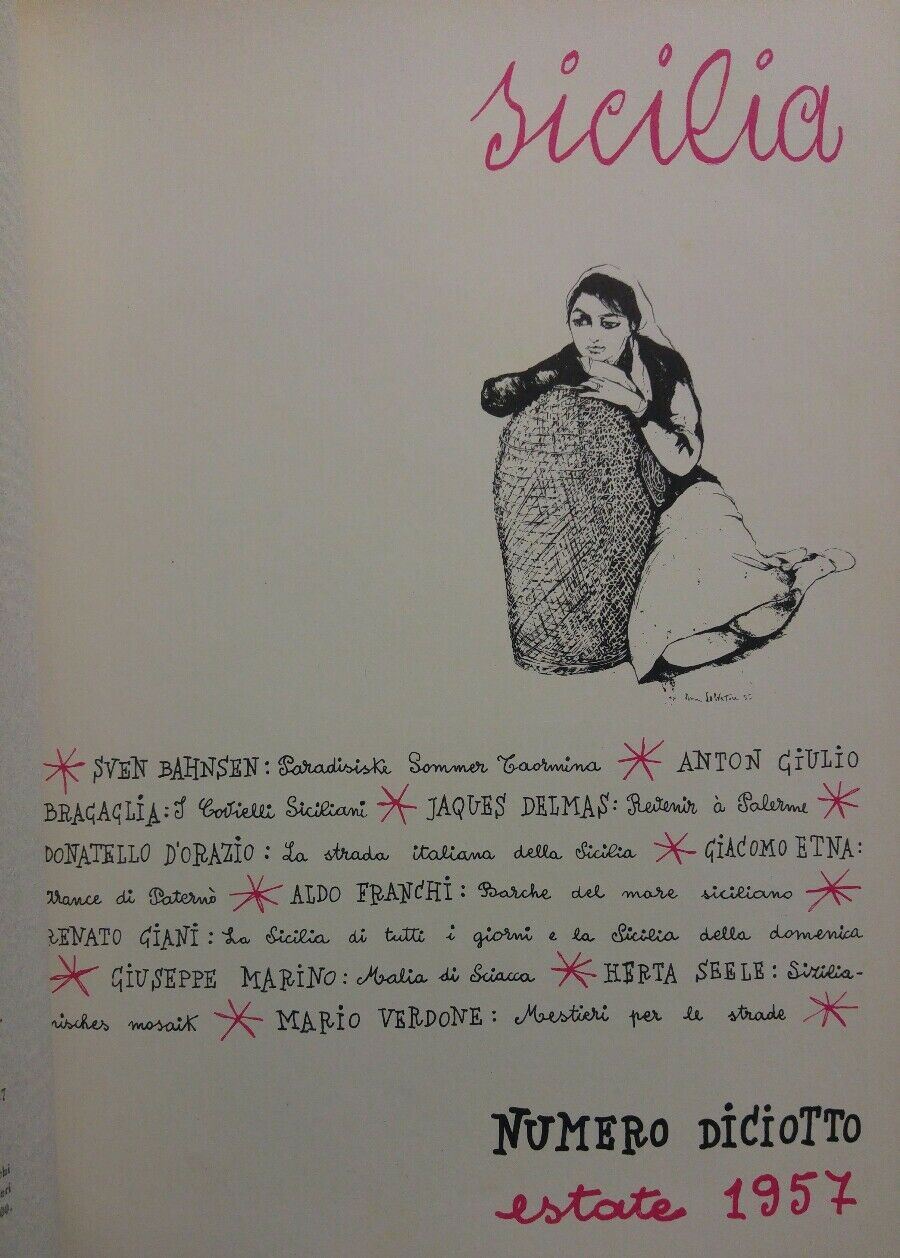 sicilia
SVEN BAHNSEN: Paradisiske Sommer Taormina * ANTON GIULIO
BRAGAGLIA: I Cortielli Siciliani * JAQUES DELMAS: Revenir à Palerme *
DONATELLO D'ORAZIO: La strada italiana della Sicilia * GIACOMO ETNA:
rance di Paternò * ALDO FRANCHI: Barche del mare siciliano *
RENATO GIANI: La Sicilia di tutti i giorni e la Sicilia della domenica
* GIUSEPPE MARINO: Malia di Sciacca * HERTA SEELE: Sizilia-
nisches mosaik * MARIO VERDONE: Mestieri per le strade *
NUMERO DICIOTTO
estate 1957